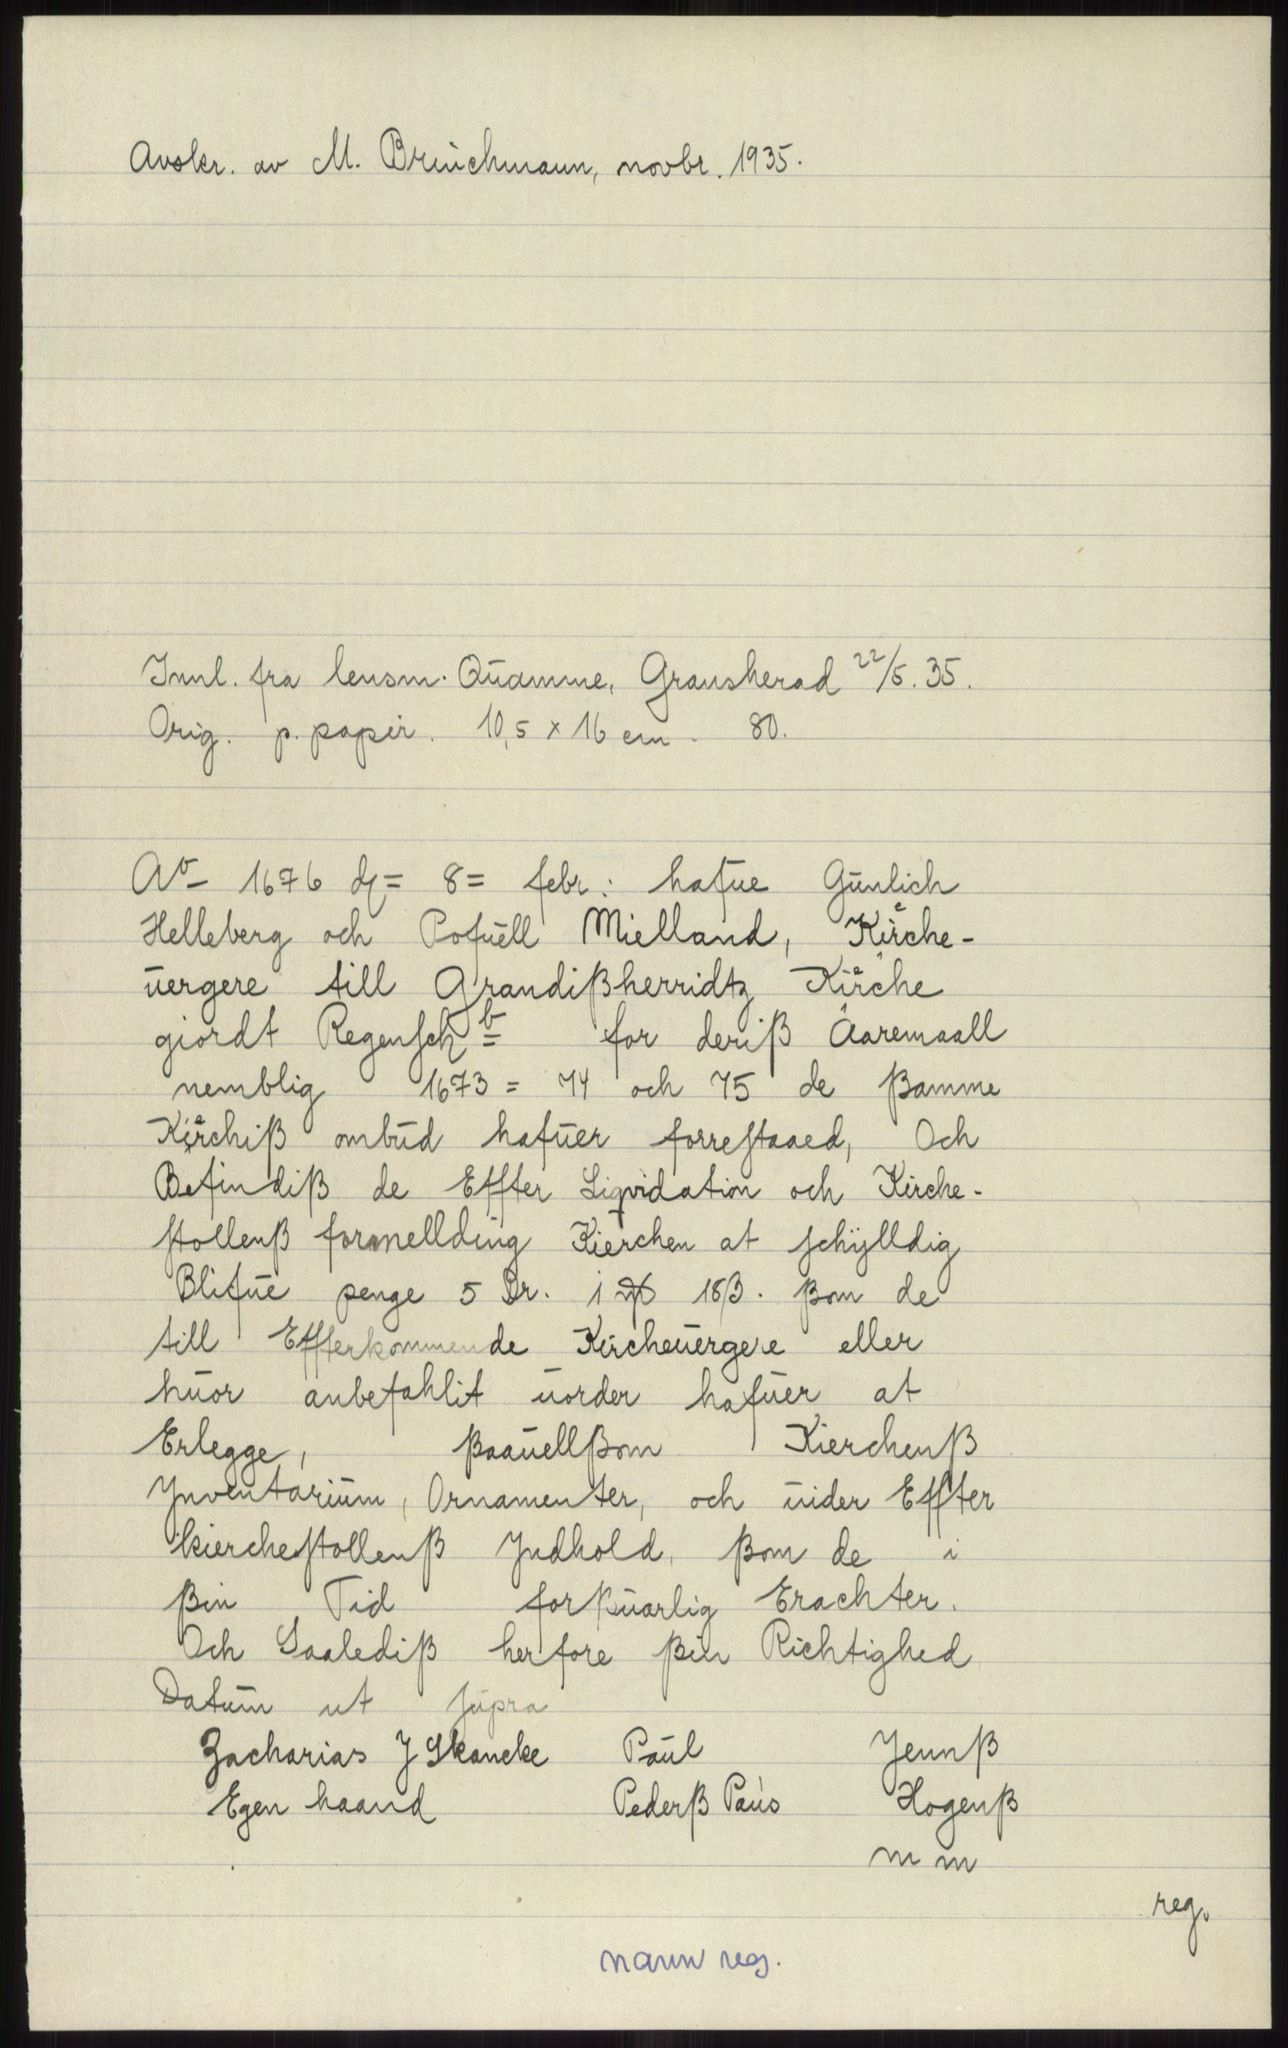 Avskr. av M. Bruchmann, novbr. 1935.
Innl. fra lensm. Quamme, Gransherad 22/5. 35.
Orig. p. papir. 10,5 x 16 cm. 80.
Ao 1676 d= 8= febr: hafue Gunlich
Helleberg och Pofuell Mielland, Kirche-
uergere till Grandißherridtz Kirche
giordt Regensch for deriß Aaremaall
nemblig 1673 = 74 och 75 de ßamme
Kirchiß ombud hafuer forrestaaed, Och
Befindiß de Effter Liqvidation och Kirche-
stollenß formellding Kierchen at schylldig
Blifue penge 5 Dr. 1 18 ß. ßom de
till Effterkommende Kircheuergere eller
huor anbefahlit uorder hafuer at
Erlegge, ßaauellßom Kierchenß
Ynventarium, Ornamenter, och uider Effter
kierchestollenß Yndhold, ßom de i
ßin Tid forsuarlig Erachter.
Och Saalediß herfore ßin Richtighed
Datum ut supra
Zacharias J Skancke Paul Jennß
Egen haand Pederß Paus Hogenß
m m
reg.
navn reg.